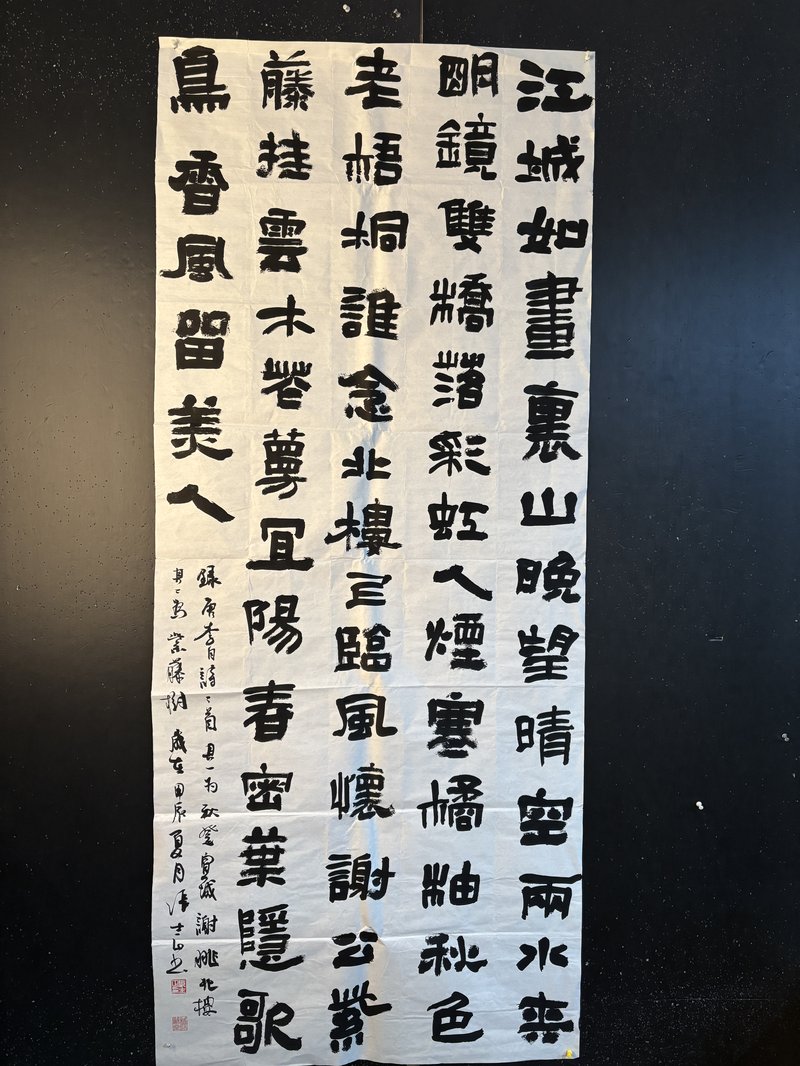 江城如畫裏山晚望晴空兩水夾
明鏡雙橋落彩虹人煙寒橘柚秋色
老梧桐誰念北樓上臨風懷謝公紫
藤挂雲木花蔓宜陽春密葉隱歌
鳥香風留美人
録唐李白詩二首其一为秋登宣城謝朓北樓
其二为紫藤樹歲在甲辰夏月